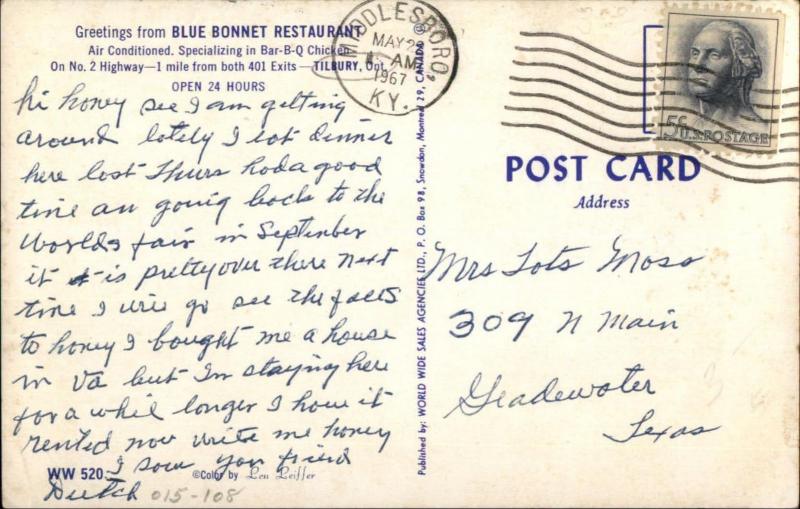 Greetings from BLUE BONNET RESTAURANT
Air Conditioned. Specializing in Bar-B-Q Chicken
On No. 2 Highway—1 mile from both 401 Exits — TILBURY, Ont.
OPEN 24 HOURS
hi honey see I am getting
around lotely I eot dinner
here lost Thurs hod a good
time am going back to the
Worlds fair in September
it is pretty over there next
time I wie go see the faels
to honey I bought me a house
in Va but I'm staying here
for a whil longer I hove it
rented now write me honey
I sow you friend
Dutch
WW 520
©Color by Len Leiffer
015-108
Published by: WORLD WIDE SALES AGENCIES LTD., P. O. Box 98, Snowdon, Montreal 29, CANADA
MIDDLESBORO,
MAY
AM
1967
KY.
5c U.S. POSTAGE
POST CARD
Address
Mrs Lots Moss
309 N Main
Gladewater
Texas